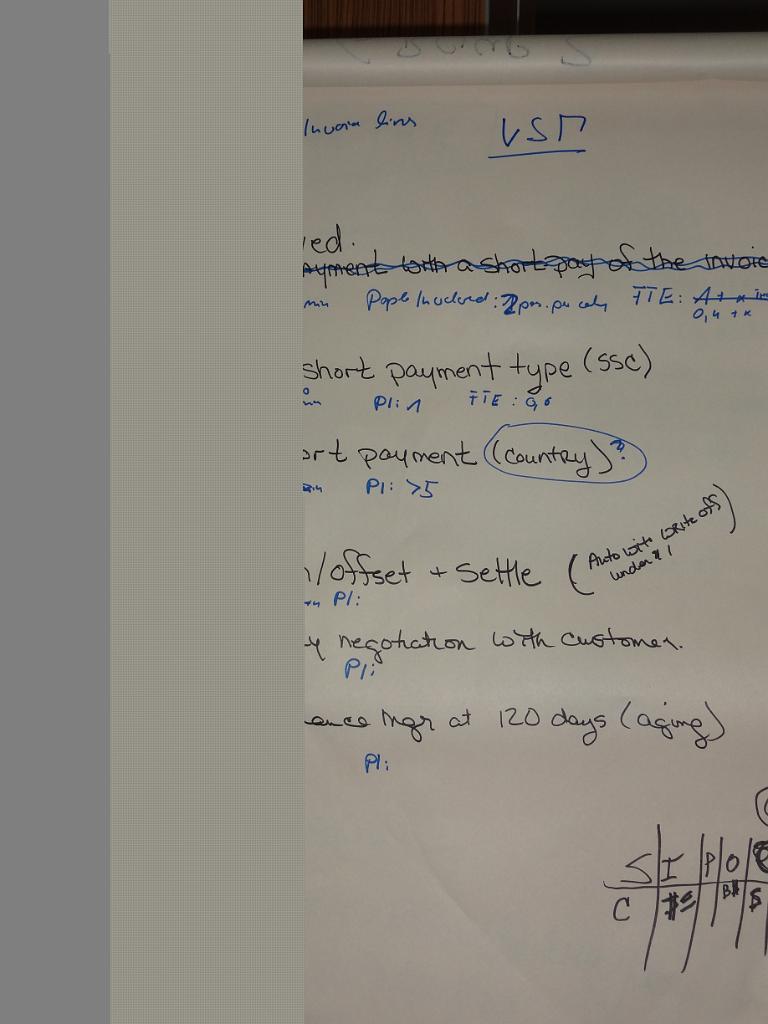 Invoice lines
VSM
ved.
ayment with a short pay of the invoic
min People Involved: 2 per. FTE: A + x
0,4 + x
short payment type (SSC)
PI: 1 FTE: 0,6
ort payment (country)?
min PI: >5
/offset + Settle (Auto write off
under 1)
PI:
y negotiation with customer.
PI:
ance Mgr at 120 days (aging)
PI:
S I P O
C B# $